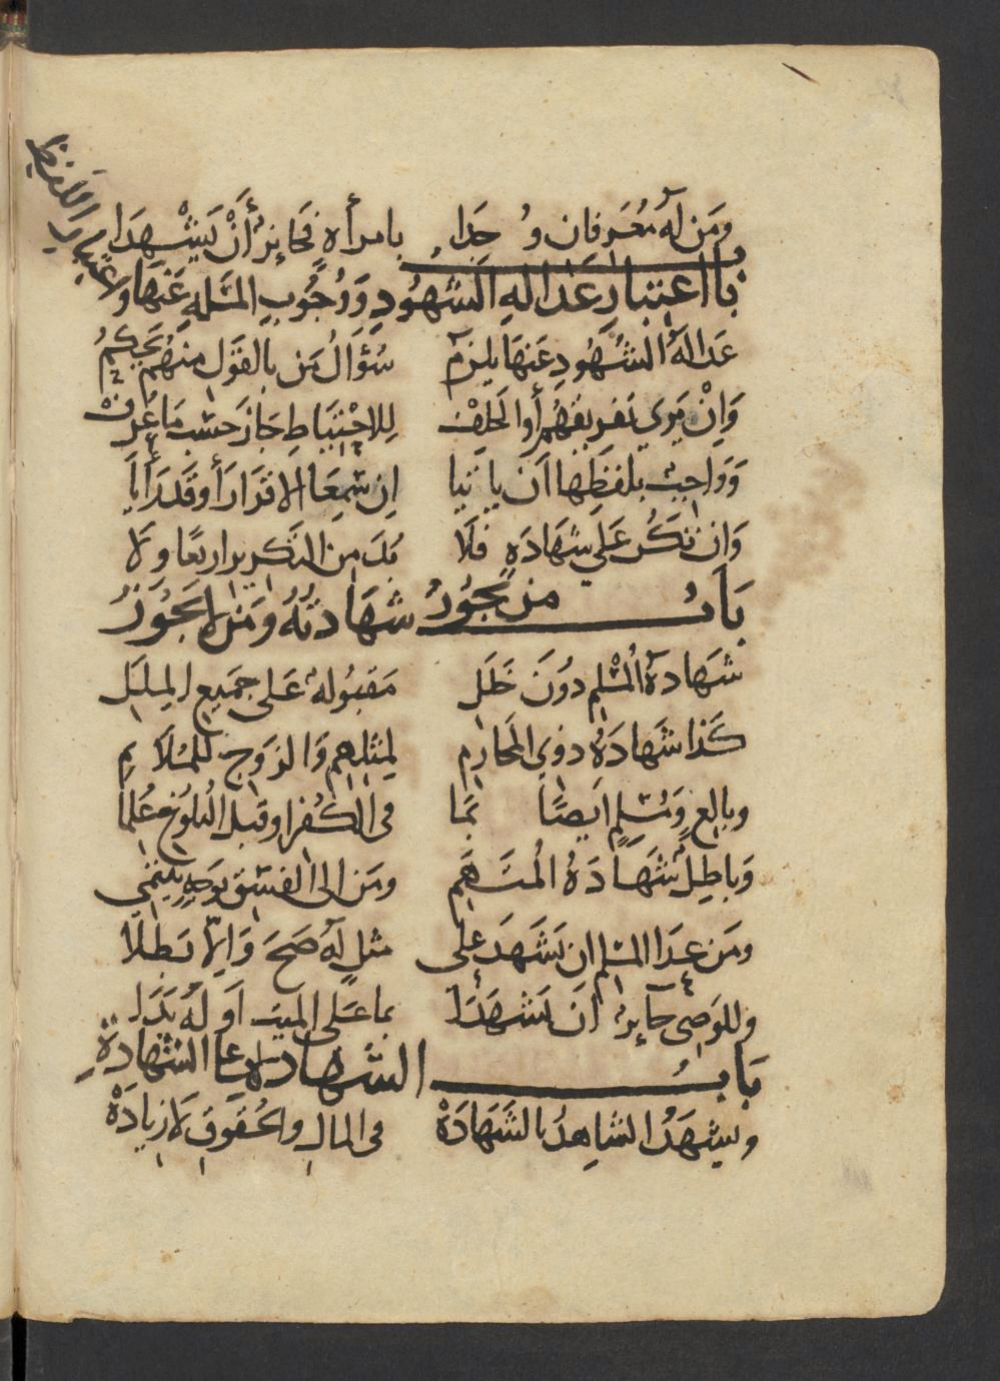 ومَن لَه مُعَرِفان وُجدَا بامرأه فجايزٌ أَنْ يَشْهدَا
باب اعتبار عَدالهِ الشهُودِ وَوُجُوبِ المسَلهِ عَنهَا واعتبار اللفظ
عَدالهُ الشُهُودِ عَنهَا يلزمُ سُؤالُ مَن بالقول منهُم يحكمُ
وَانْ يَرى تفريقهُم أوالحَلِفْ للاحْتيَاطِ جَازَ حَسْب مَا عُرفْ
وَوَاجبٌ بلفظِهَا اَن ياتيا ان سَمِعَا الاقرَارَ أو قَد رَأيَا
وَان تكُن عَلى شهَادَهٍ فلَا بُدَ من التكرير اربعًا ولَا
بَابُ من يجُوزُ شهَادتهُ ومَن لا يَجُوزُ
شهَادةُ المسْلم دوُنَ خَلَل مَقبُولهٌ عَلى جَميع الملَل
كَذا شَهادَهُ ذوي المَحارِم لمثلهم وَالزَوج للمُلَازِم
وبالغٍ وَمُسْلمٍ ايضًا بمَا فى الكُفر او قبل البُلوُغ عُلمَا
وَباطِلٌ شهَادَهُ المُتهَم ومَن الى الفسْق بوَجهٍ ينتمي
ومَن عدَا المسْلم ان يَشهَدَ على مثلٍ لَه صَحَ وَالّا بَطُلَا
وللوَصى جآيزٌ اَن يشهدَا بما عَلى الميت اَو لَهُ بَدَا
بَابُ الشهادة على الشهادةِ
ويشهَدُ الشاهِدُ بالشَهَادَةْ فى المال والحُقوق لَا زيادَةْ